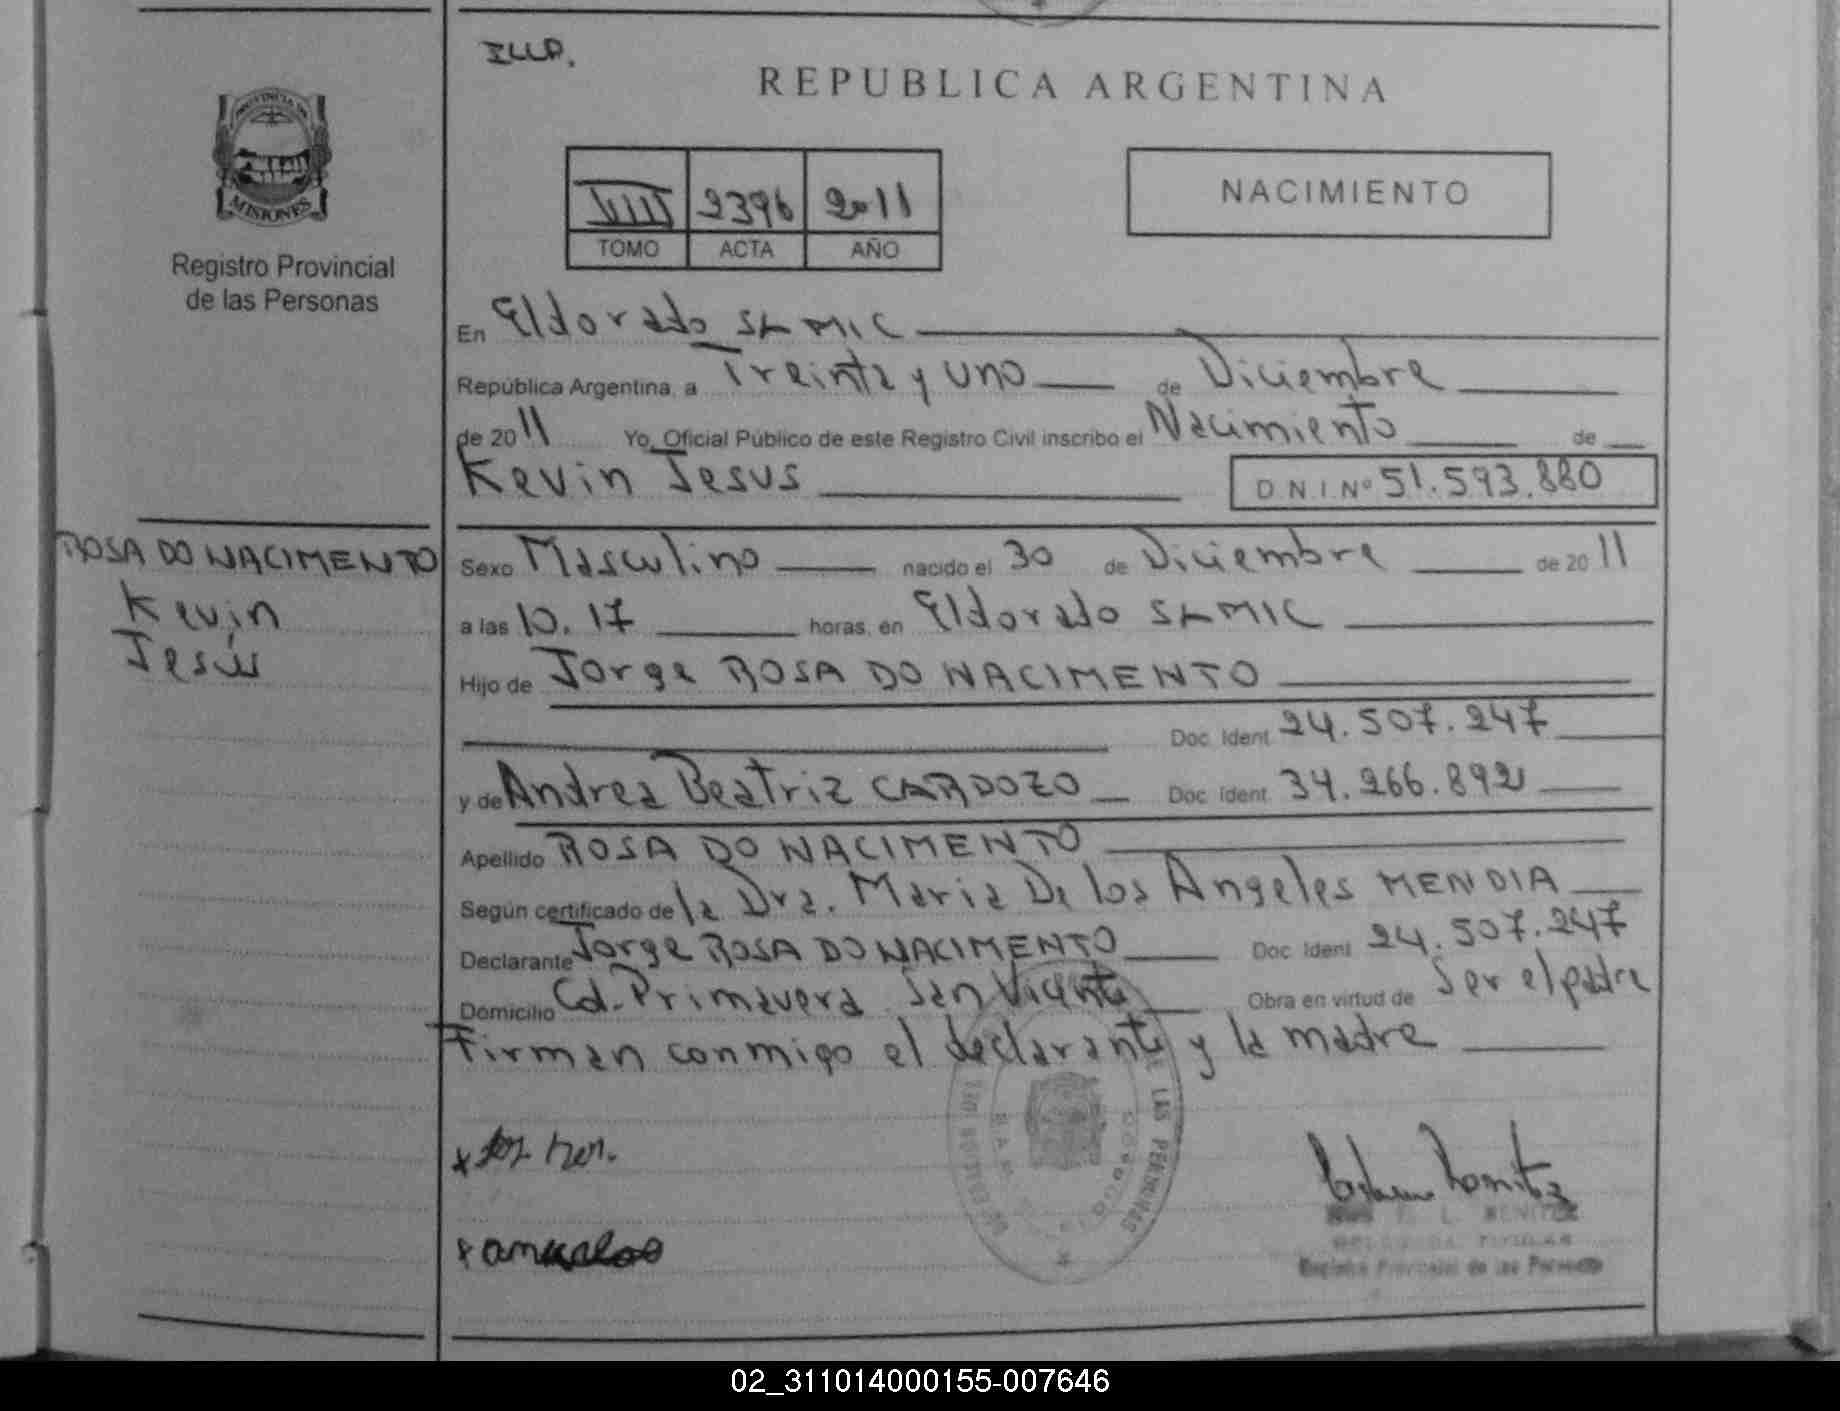 ILLP.
REPUBLICA ARGENTINA
PROVINCIA DE
MISIONES
Registro Provincial
de las Personas
VIII 2396 2011
TOMO ACTA AÑO
NACIMIENTO
En Eldorado SLMIC
República Argentina, a Treinta y uno de Diciembre
de 2011 Yo, Oficial Público de este Registro Civil inscribo el Nacimiento de
Kevin Jesus D.N.I. Nº 51.593.880
ROSA DO NACIMENTO
Kevin
Jesús
Sexo Masculino nacido el 30 de Diciembre de 2011
a las 10.17 horas, en Eldorado SLMIC
Hijo de Jorge ROSA DO NACIMENTO
Doc. Ident. 24.507.247
y de Andrea Beatriz CARDOZO Doc. Ident. 34.266.892
Apellido ROSA DO NACIMENTO
Según certificado de la Dra. Maria De los Angeles MENDIA
Declarante Jorge ROSA DO NACIMENTO Doc. Ident. 24.507.247
Domicilio Cd. Primavera San Vicente Obra en virtud de Ser el padre
Firman conmigo el declarante y la madre
DE LAS PERSONAS
L. BENITEZ
DELEGADA TITULAR
Registro Provincial de las Personas
02_311014000155-007646